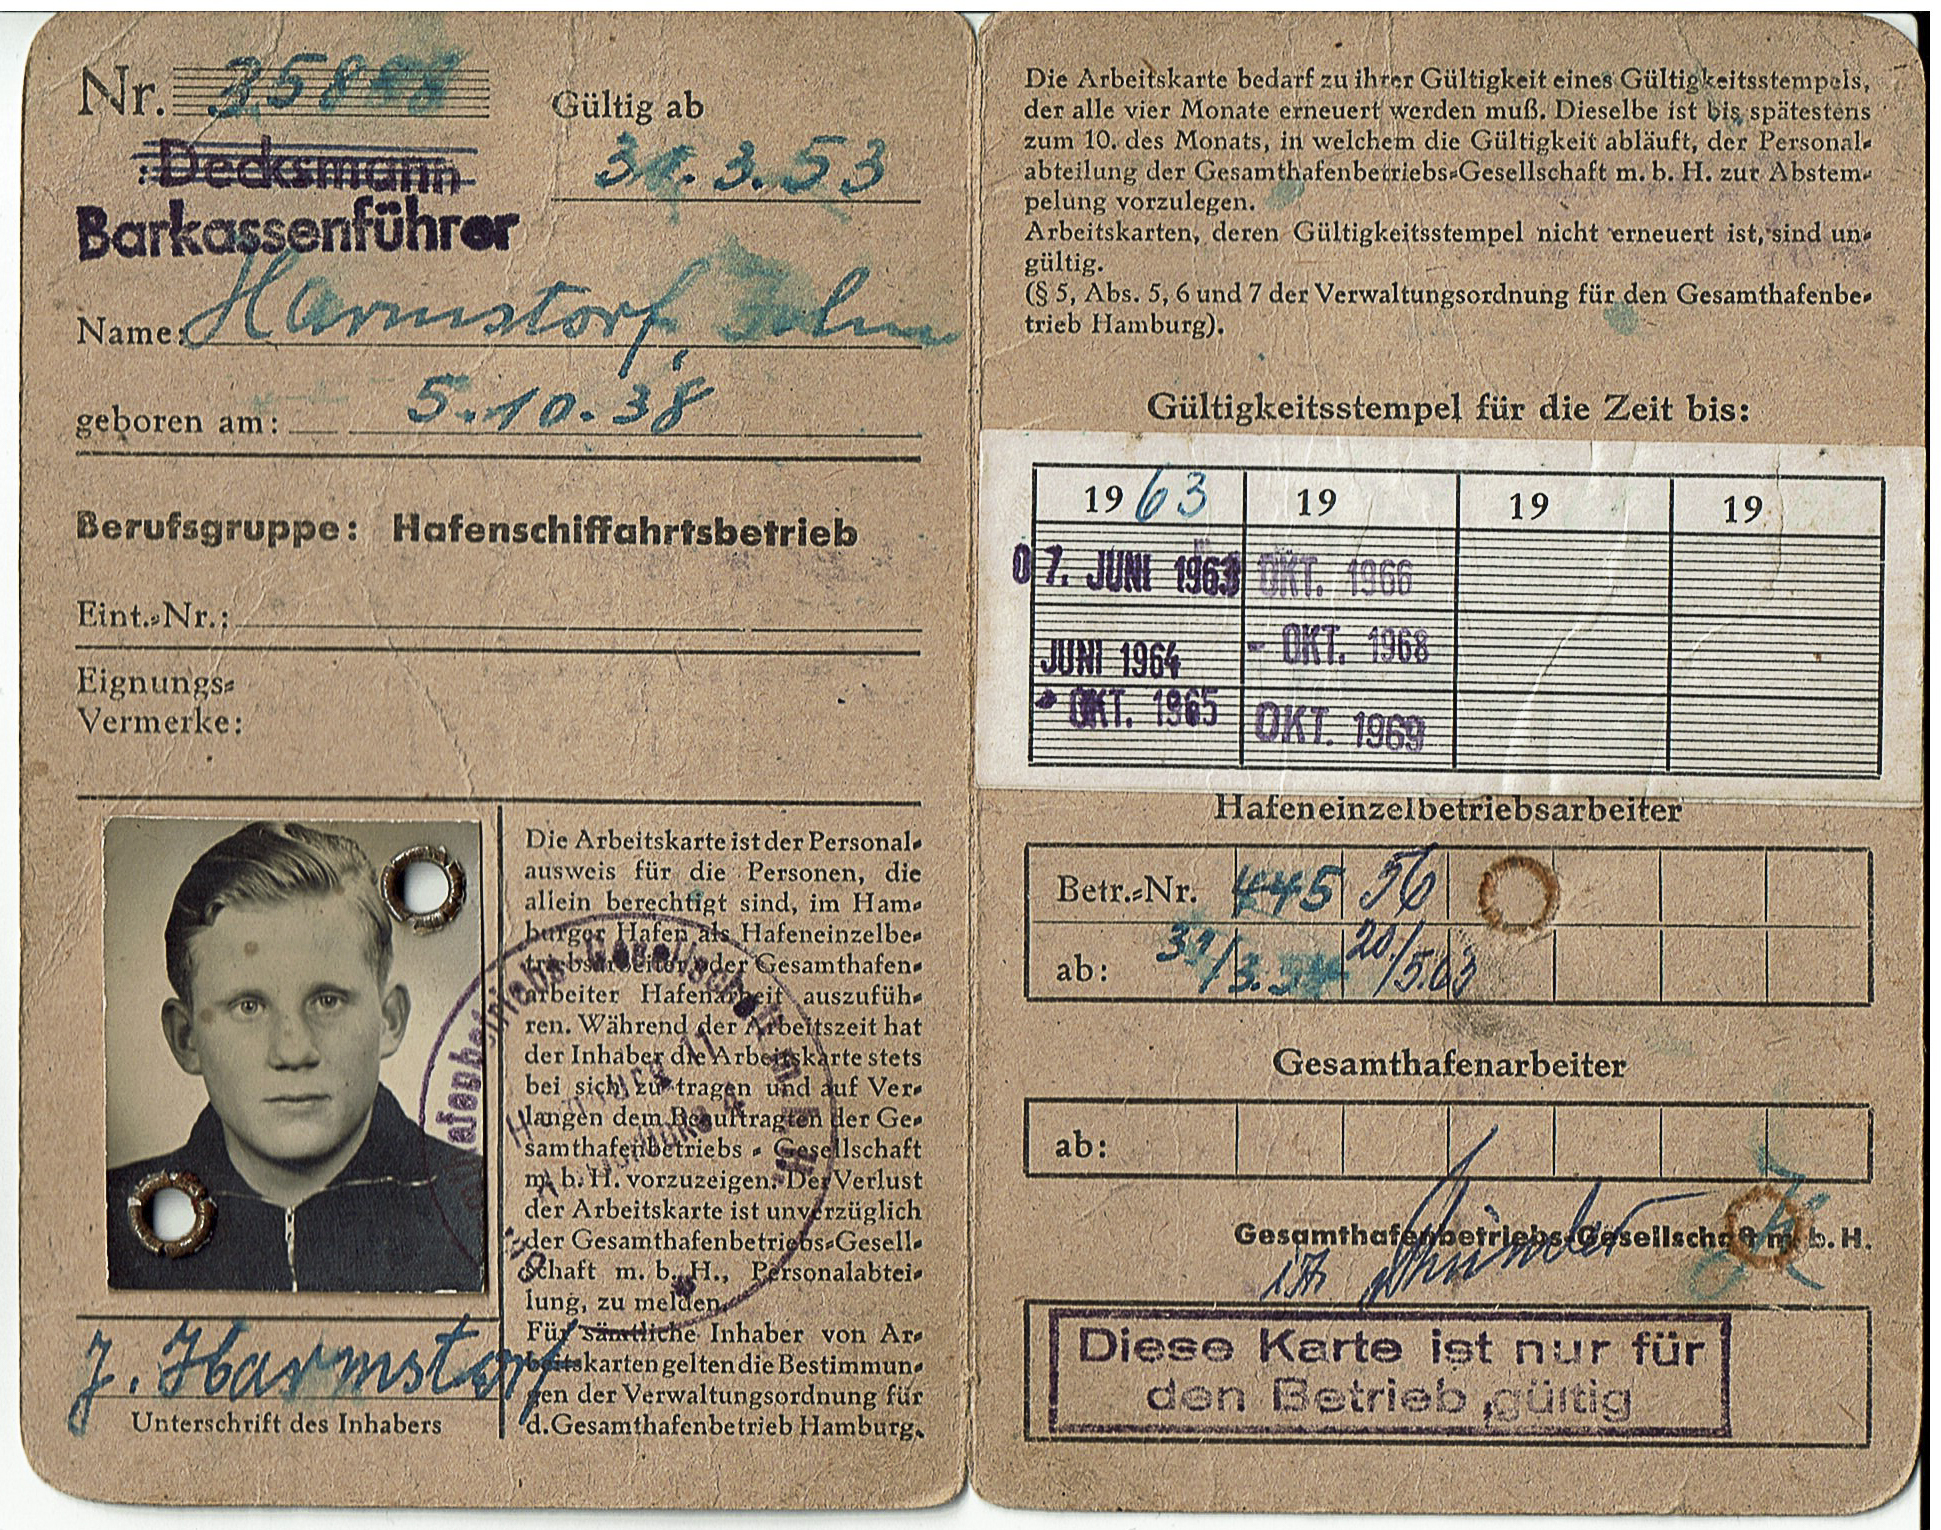 Nr.
Gültig ab
31.3.53
Decksmann
Barkassenführer
Name: Harmstorf, John
geboren am: 5.10.38
Berufsgruppe: Hafenschiffahrtsbetrieb
Eint.-Nr.:
Eignungs-
Vermerke:
Die Arbeitskarte ist der Personal-
ausweis für die Personen, die
allein berechtigt sind, im Ham-
burger Hafen als Hafeneinzelbe-
triebsarbeiter oder Gesamthafen-
arbeiter Hafenarbeit auszufüh-
ren. Während der Arbeitszeit hat
der Inhaber die Arbeitskarte stets
bei sich zu tragen und auf Ver-
langen dem Beauftragten der Ge-
samthafenbetriebs - Gesellschaft
m. b. H. vorzuzeigen. Der Verlust
der Arbeitskarte ist unverzüglich
der Gesamthafenbetriebs-Gesell-
schaft m. b. H., Personalabtei-
lung, zu melden.
Für sämtliche Inhaber von Ar-
beitskarten gelten die Bestimmun-
gen der Verwaltungsordnung für
d. Gesamthafenbetrieb Hamburg.
J. Harmstorf
Unterschrift des Inhabers
Die Arbeitskarte bedarf zu ihrer Gültigkeit eines Gültigkeitsstempels,
der alle vier Monate erneuert werden muß. Dieselbe ist bis spätestens
zum 10. des Monats, in welchem die Gültigkeit abläuft, der Personal-
abteilung der Gesamthafenbetriebs-Gesellschaft m. b. H. zur Abstem-
pelung vorzulegen.
Arbeitskarten, deren Gültigkeitsstempel nicht erneuert ist, sind un-
gültig.
(§ 5, Abs. 5, 6 und 7 der Verwaltungsordnung für den Gesamthafenbe-
trieb Hamburg).
Gültigkeitsstempel für die Zeit bis:
1963 19 19 19
07. JUNI 1963 OKT. 1966
JUNI 1964 - OKT. 1968
OKT. 1965 OKT. 1969
Hafeneinzelbetriebsarbeiter
Betr.-Nr. 445 56
ab: 31/3.54 20/5.63
Gesamthafenarbeiter
ab:
Gesamthafenbetriebs-Gesellschaft m. b. H.
Diese Karte ist nur für
den Betrieb gültig